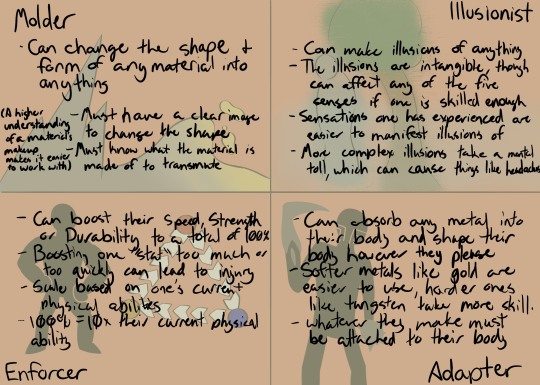 Molder
- Can change the shape &
form of any material into
anything
(A higher
understanding
of a materials
makeup
makes it easier
to work with)
- Must have a clear image
to change the shape
- Must know what the material is
made of to transmute
Illusionist
- Can make illusions of anything
- The illusions are intangible, though
can affect any of the five
senses if one is skilled enough
- Sensations one has experienced are
easier to manifest illusions of
- More complex illusions take a mental
toll, which can cause things like headaches
- Can boost their Speed, Strength
or Durability to a total of 100%
- Boosting one "stat" too much or
too quickly can lead to injury
- Scale based on one's current
physical abilities
- 100% = 10x their current physical
ability
Enforcer
- Can absorb any metal into
their body and shape their
body however they please
- Softer metals like gold are
easier to use, harder ones
like tungsten take more skill.
- whatever they make must
be attached to their body
Adapter